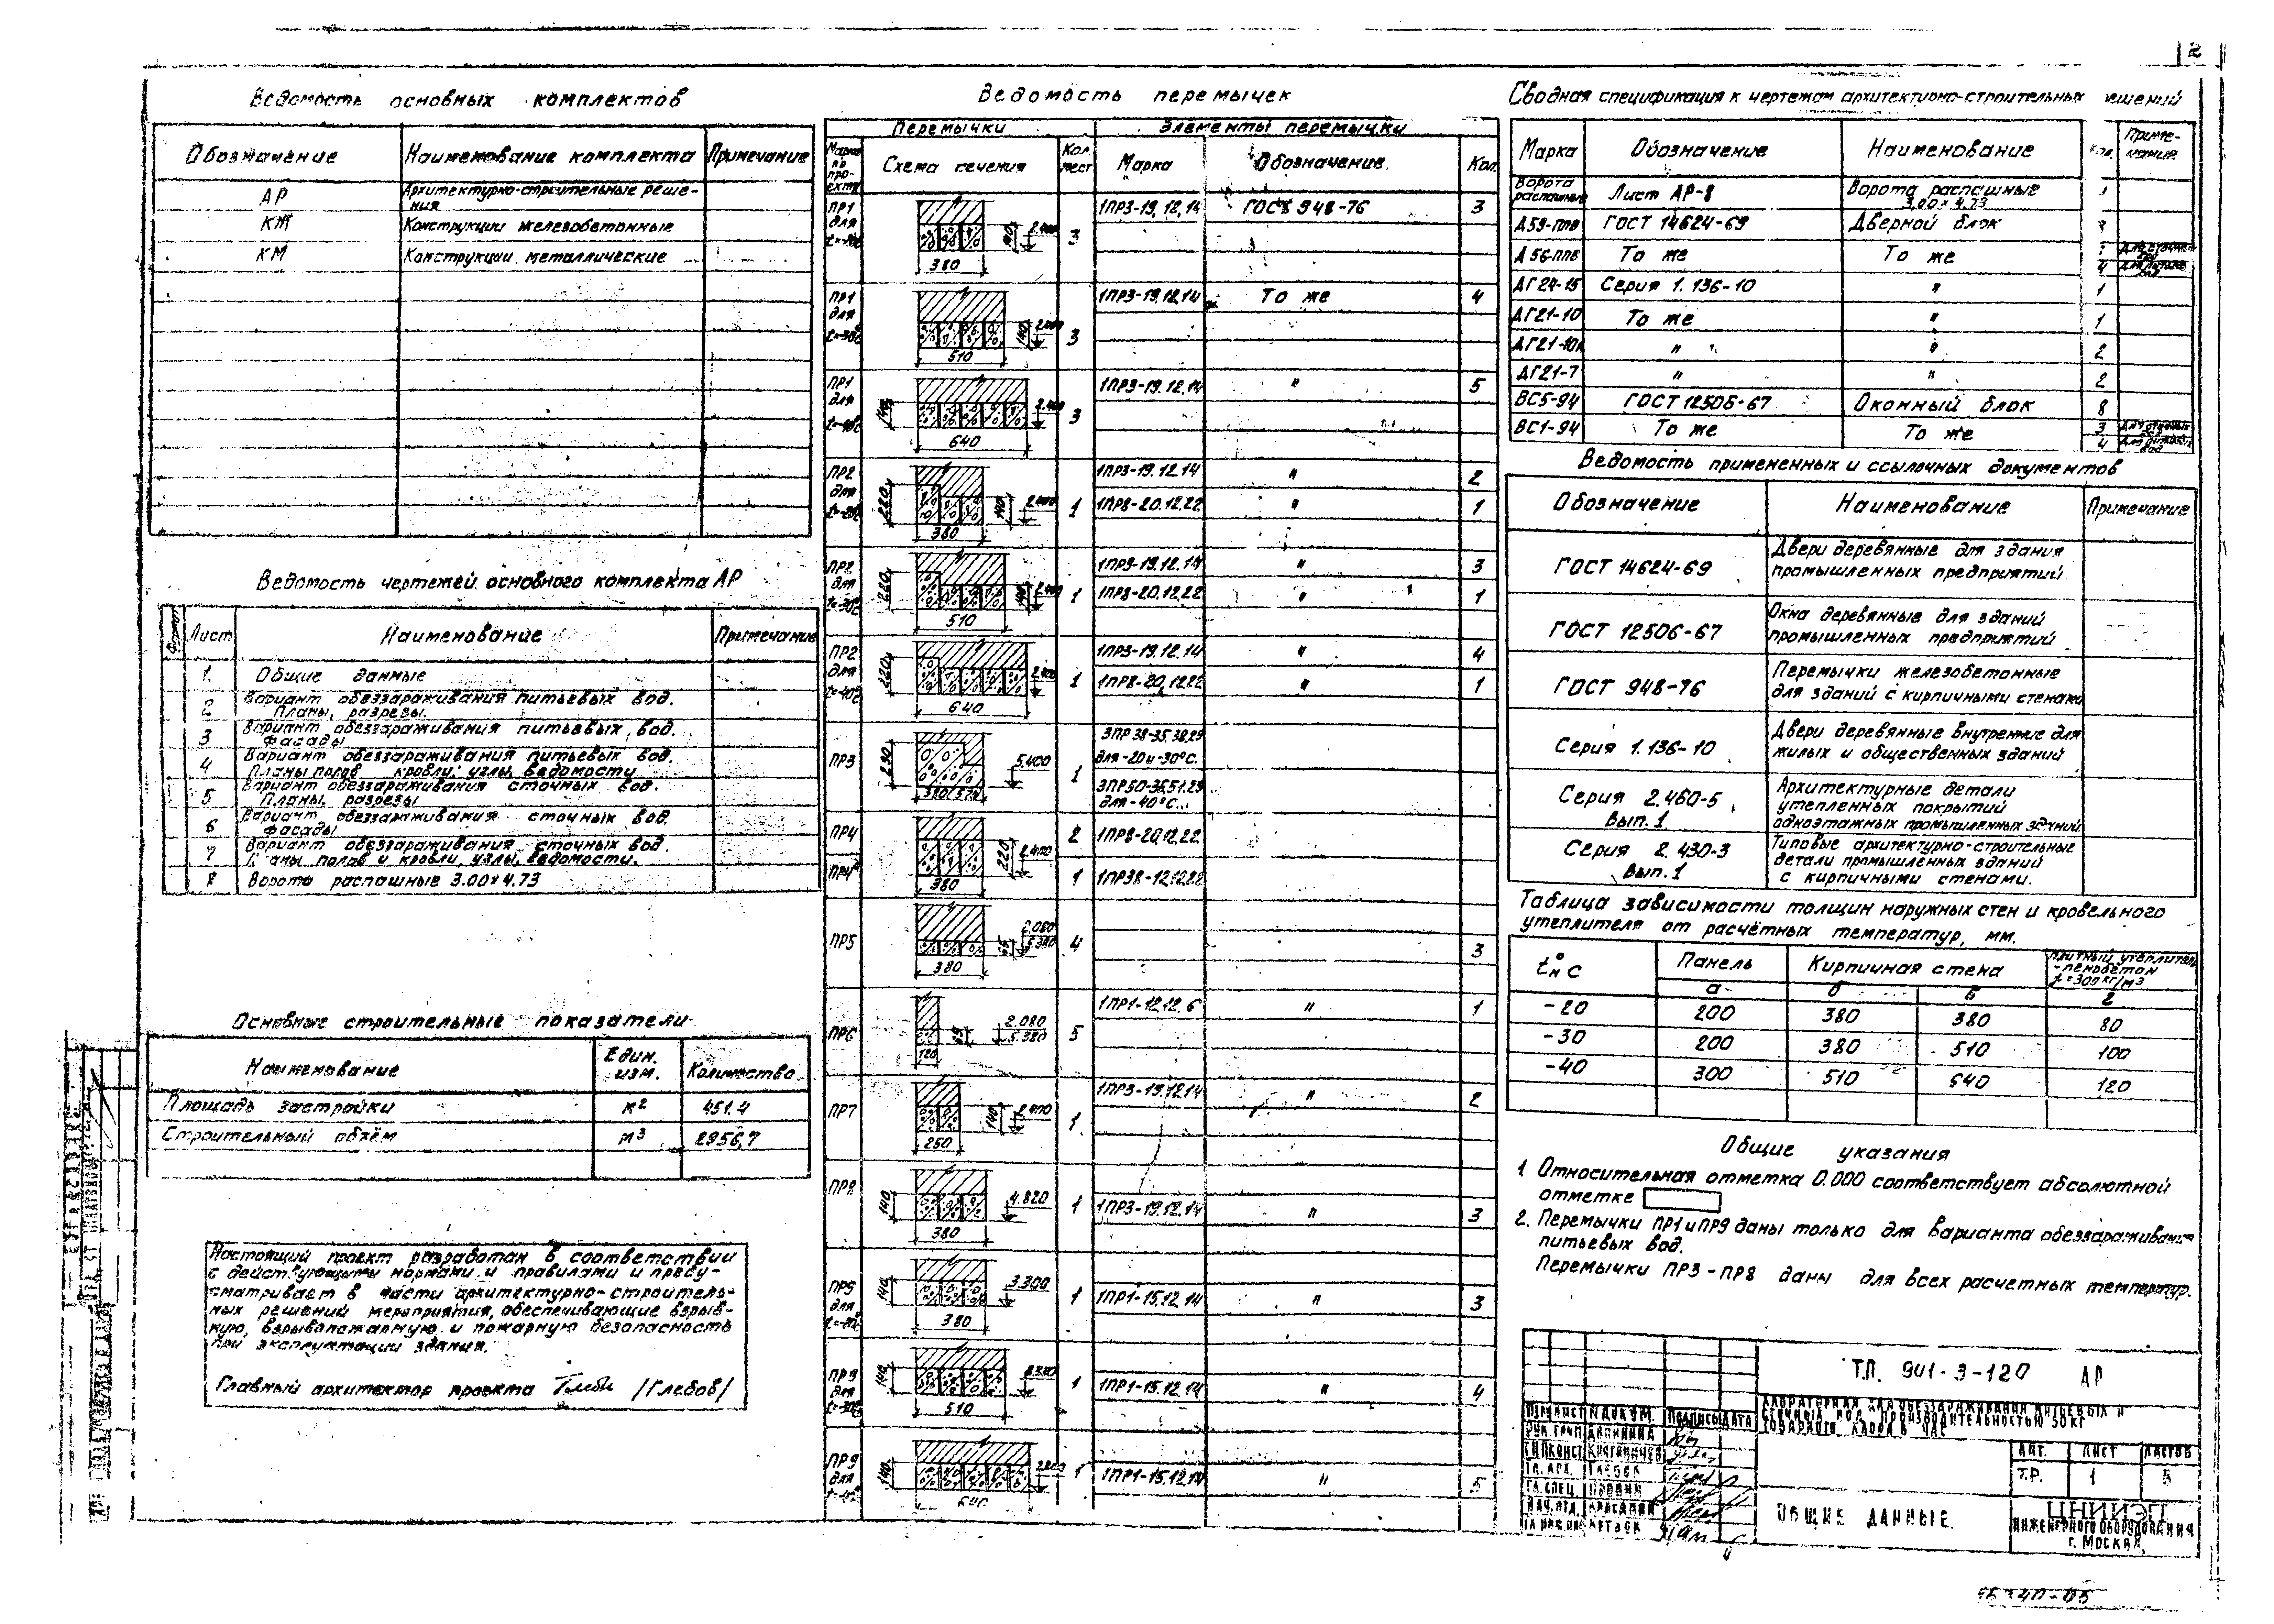 2
Ведомость основных комплектов
Обозначение Наименование комплекта Примечание
АР Архитектурно-строительные реше-
ния
КЖ Конструкции железобетонные
КМ Конструкции металлические
Ведомость чертежей основного комплекта АР
Лист Наименование Примечание
1. Общие данные
2 Вариант обеззараживания питьевых вод.
Планы, разрезы.
3 Вариант обеззараживания питьевых вод.
Фасады
4 Вариант обеззараживания питьевых вод.
Планы полов кровли, узлы, ведомости
5 Вариант обеззараживания сточных вод.
Планы, разрезы
6 Вариант обеззараживания сточных вод.
Фасады
7 Вариант обеззараживания сточных вод.
полов и кровли, узлы, ведомости.
8 Ворота распашные 3.00×4.73
Основные строительные показатели
Наименование Един. изм. Количество
Площадь застройки м2 451.4
Строительный объём м3 2956,7
Настоящий проект разработан в соответствии
с действующими нормами и правилами и преду-
сматривает в части архитектурно-строитель-
ных решений мероприятия, обеспечивающие взрыв-
ную, взрывопожарную и пожарную безопасность
при эксплуатации здания.
Главный архитектор проекта /Глебов/
Ведомость перемычек
Перемычки Элементы перемычки
Марка по про-екту Схема сечения Кол. мест Марка Обозначение. Кол.
ПР1 для 380 3 1ПР3-19.12.14 ГОСТ 948-76 3
ПР1 для t=-30°С 510 140 3 1ПР3-19.12.14 То же 4
ПР1 для t=-40°С 140 640 3 1ПР3-19.12.14 " 5
ПР2 для 220 380 140 1 1ПР3-19.12.14 " 2
1ПР8-20.12.22 " 1
ПР2 для t=-30°С 220 510 1 1ПР3-19.12.14 " 3
1ПР8-20.12.22 " 1
ПР2 для t=-40°С 220 640 2.400 1 1ПР3-19.12.14 " 4
1ПР8-20.12.22 " 1
ПР3 290 5.400 1
для -20 и -30°С.
для -40°С
ПР4 380 220 2.400 2 1ПР8-20.12.22
1
ПР5 380 65 2.080 5.380 4 3
ПР6 120 65 2.080 5.380 5 1ПР1-12.12.6 " 1
ПР7 250 140 2.400 1 1ПР3-19.12.14 " 2
ПР8 140 380 4.820 1 1ПР3-19.12.14 " 3
ПР9 для 140 380 3.300 1 1ПР1-15.12.14 " 3
ПР9 для t=-30°С 140 510 1 1ПР1-15.12.14 " 4
ПР9 для 140 640 1 1ПР1-15.12.14 " 5
Сводная спецификация к чертежам архитектурно-строительных решений
Марка Обозначение Наименование Кол. Приме-чание
Ворота распашные Лист АР-8 Ворота распашные
3.00×4.73
Д59-ппв ГОСТ 14624-69 Дверной блок
Д56-ппв То же То же
4
ДГ24-15 Серия 1.136-10 " 1
ДГ21-10 То же " 1
" " 2
ДГ21-7 " " 2
ВС5-94 ГОСТ 12506-67 Оконный блок 8
ВС1-94 То же То же 3
4
Ведомость примененных и ссылочных документов
Обозначение Наименование Примечание
ГОСТ 14624-69 Двери деревянные для здания
промышленных предприятий.
ГОСТ 12506-67 Окна деревянные для зданий
промышленных предприятий
ГОСТ 948-76 Перемычки железобетонные
для зданий с кирпичными стенами
Серия 1.136-10 Двери деревянные внутренние для
жилых и общественных зданий
Серия 2.460-5 Архитектурные детали
Вып. 1 утепленных покрытий
одноэтажных промышленных зданий
Серия 2.430-3 Типовые архитектурно-строительные
Вып. 1 детали промышленных зданий
с кирпичными стенами.
Таблица зависимости толщин наружных стен и кровельного
утеплителя от расчётных температур, мм.
tн°С Панель Кирпичная стена Плитный утеплитель
-пенобетон
γ=300 кг/м3
а б в г
-20 200 380 380 80
-30 200 380 510 100
-40 300 510 640 120
Общие указания
1 Относительная отметка 0.000 соответствует абсолютной
отметке
2. Перемычки ПР1 и ПР9 даны только для варианта обеззараживания
питьевых вод.
Перемычки ПР3-ПР8 даны для всех расчетных температур.
Т.П. 901-3-120 АР
Хлораторная для обеззараживания питьевых и
сточных вод производительностью 50 кг
товарного хлора в час
Изм Лист № докум. Подпись Дата
Рук. групп
Гл. арх. Глебов
Гл. спец.
Нач. отд.
Лит. Лист Листов
Т.Р. 1 5
Общие данные.
ЦНИИЭП
инженерного оборудования
г. Москва.